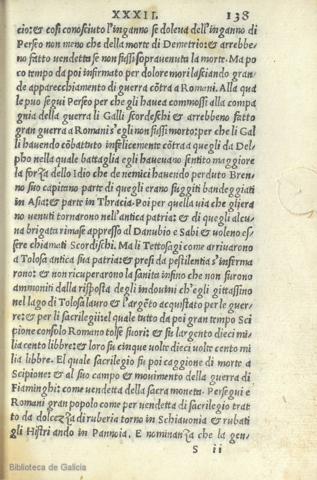 XXXII. 138
cio: & cosi conosciuto l'inganno se doleua dell'inganno di
Perseo non meno che della morte di Demetrio: & arrebbe
no fatto vendetta se non fussi sopravenuta la morte. Ma po
co tempo da poi infirmato per dolore mori lasciando gran
de apparecchiamento di guerra cōtra a Romani. Alla qua
le puo segui Perseo per che gli hauea commossi alla compa
gnia della guerra li Galli scordeschi & arrebbeno fatto
gran guerra a Romani s'egli non fussi morto: per che li Gal
li hauendo cōbattuto infelicemente cōtra a quegli da Del=
pho nella quale battaglia egli haueuano sentito maggiore
la forza dello Idio che de nemici hauendo perduto Bren=
no suo capitano parte di quegli erano fuggiti bandeggiati
in Asia: & parte in Thracia. Poi per quella via che gliera
no venuti tornarono nell'antica patria: & di quegli alcu=
na brigata rimase appresso al Danubio e Sabi & voleno es=
sere chiamati Scordischi. Ma li Tettosagi come arriuarono
a Tolosa antica sua patria: & presi da pestilentia s'inferma
rono: & non ricuperarono la sanita infino che non furono
ammoniti dalla risposta degli indouini ch'egli gittassino
nel lago di Tolosa lauro & l'argēto acquistato per le guer=
re: & per li sacrilegii: el quale tutto da poi gran tempo Sci
pione consolo Romano tolse fuori: & fu largento dieci mi=
lia cento libbre: & loro fu cinque volte dieci volte cento mi
lia libbre. El quale sacrilegio fu poi caggione di morte a
Scipione: & al suo campo & mouimento della guerra di
Fiaminghi: come vendetta della sacra moneta. Persegui e
Romani gran popolo come per vendetta di sacrilegio trat
to da dolcezza di ruberia torno in Schiauonia & rubati
gli Histri ando in Pannoia. E nominanza che la gen=
S ii
Biblioteca de Galicia